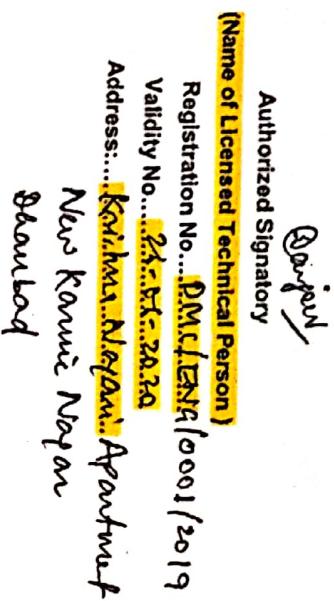 Authorized Signatory
(Name of Licensed Technical Person )
Registration No....DMC/ENG/0001/2019
Validity No.....
Address:....Krishna Nayani.. Apartment
New Karmic Nagar
Dhanbad